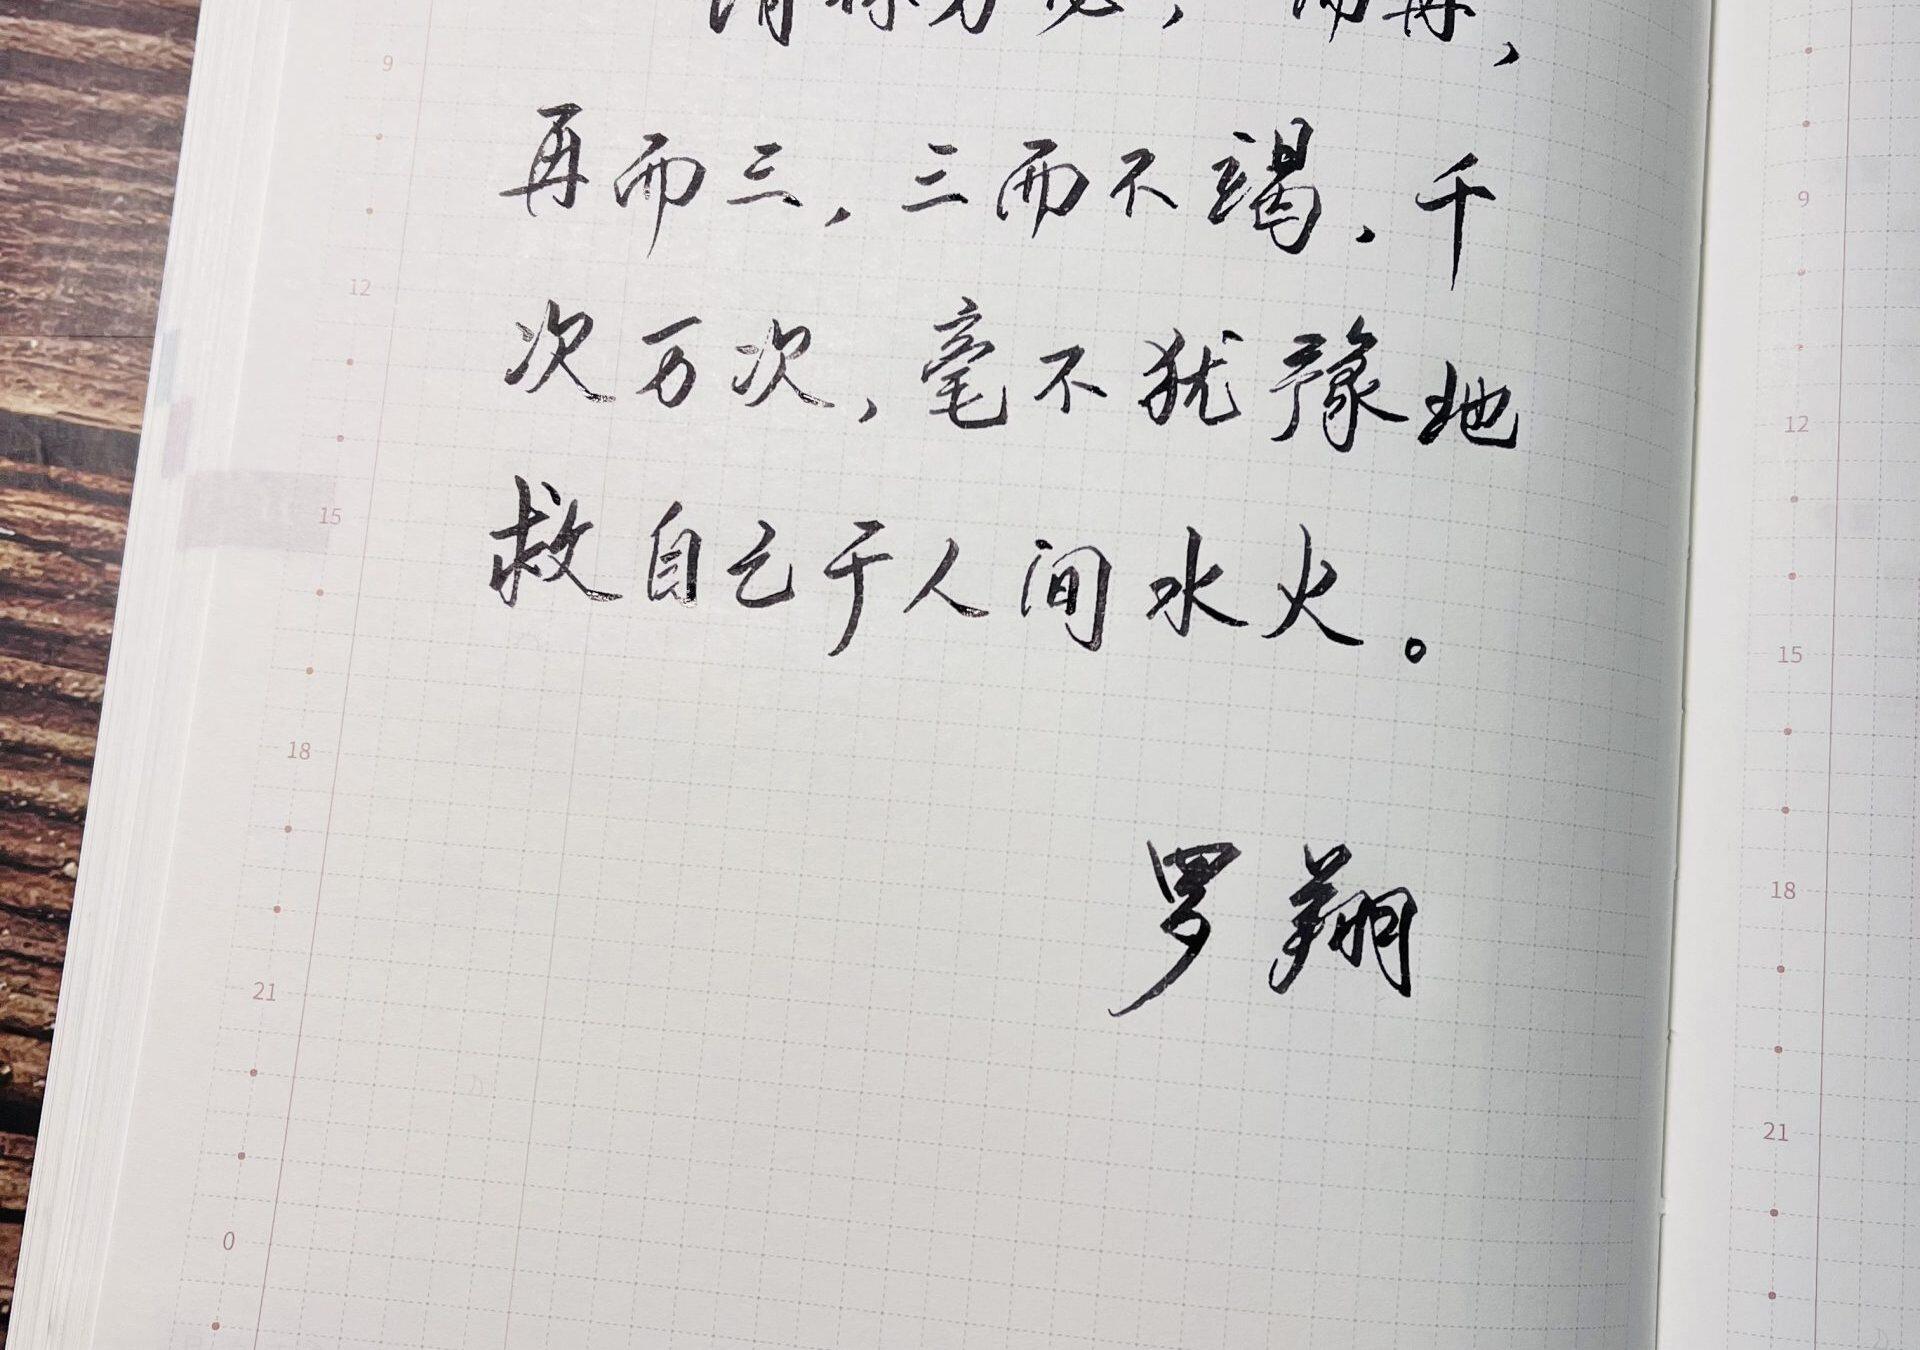 再而三，三而不竭，千
次万次，毫不犹豫地
救自己于人间水火。
罗翔
9
12
15
18
21
0
9
12
15
18
21